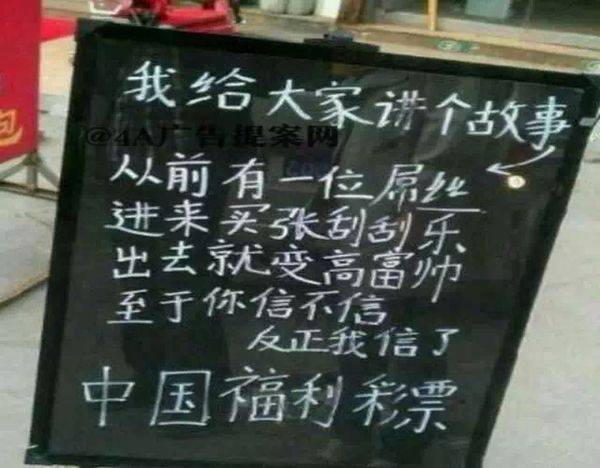 我给大家讲个故事
@4A广告提案网
从前有一位屌丝
进来买张刮刮乐
出去就变高富帅
至于你信不信
反正我信了
中国福利彩票